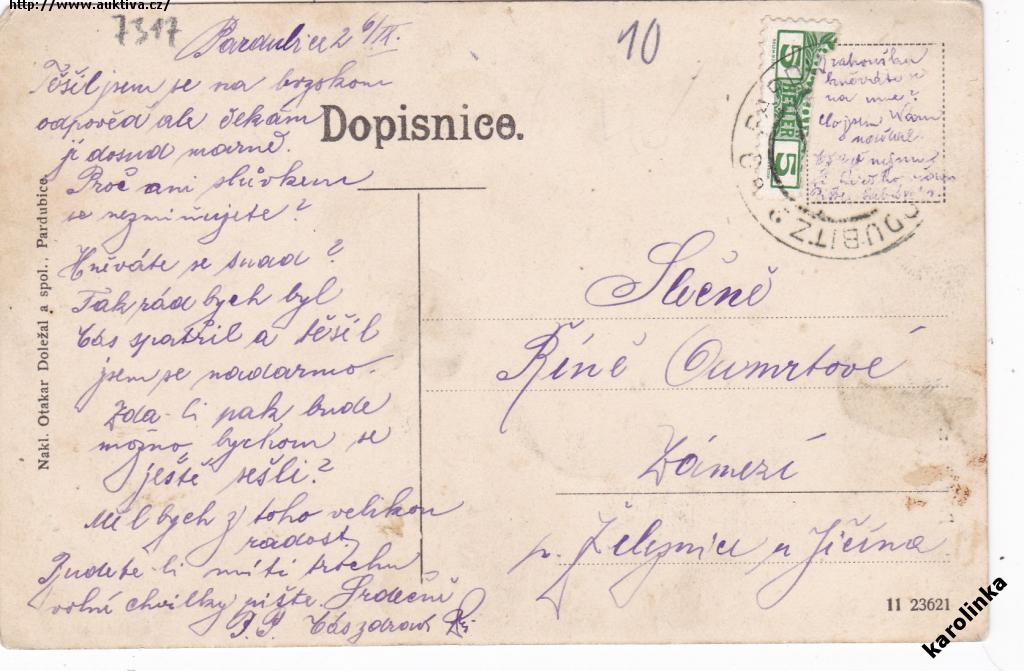 http://www.auktiva.cz/
7317
Pardubice 26/III.
10
Těšil jsem se na brzskou
odpověď ale čekám
ji dosud marně.
Proč ani slůvkem
se nezmiňujete?
Hněváte se snad?
Tak rád bych byl
Vás spatřil a těšil
jsem se nadarmo.
Zda-li pak bude
možno, bychom se
ještě sešli?
Měl bych z toho velikou
radost.
Budete-li míti trochu
volné chvilky pište. Srdečně
Vás zdraví
Dopisnice.
Nakl. Otakar Doležal a spol., Pardubice.
5
HELLER
5
DUBITZ
hněváte
na mne?
co jsem Vám
Slečně
Říně
Zámezí
p. Železnice u Jičína
11 23621
karolinka